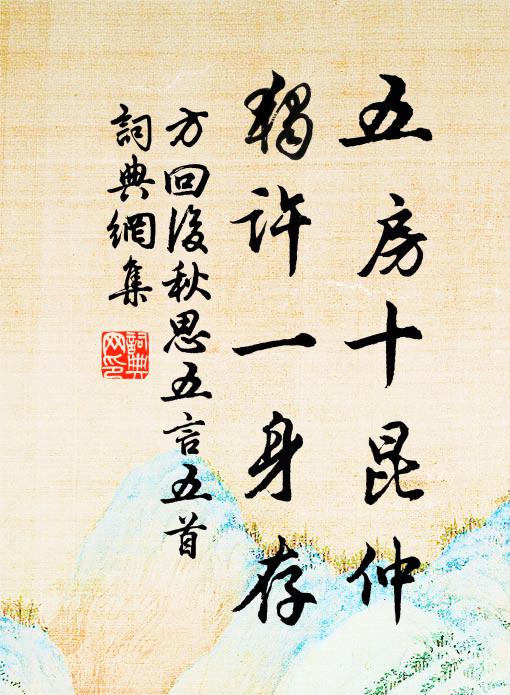 五房十昆仲
獨許一身存
方回後秋思五言五首
詞典網集
詞典網印